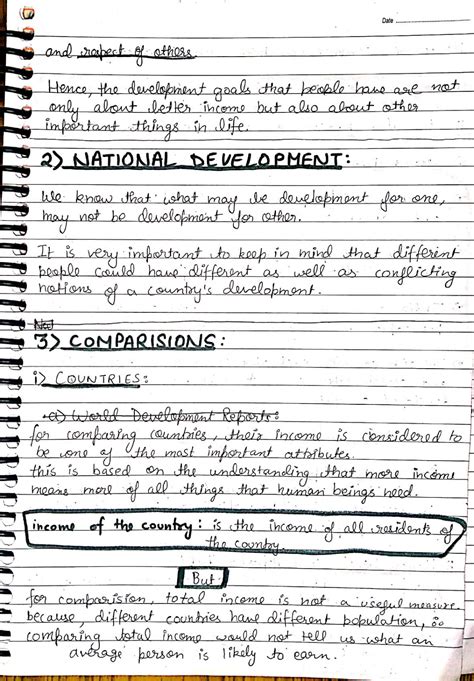 Date
and respect of others
Hence, the development goals that people have are not
only about better income but also about other
important things in life.
2) NATIONAL DEVELOPMENT:
We know that what may be development for one,
may not be development for other.
It is very important to keep in mind that different
people could have different as well as conflicting
notions of a country's development.
3) COMPARISIONS:
i) COUNTRIES:
a) World Development Reports:
for comparing countries, their income is considered to
be one of the most important attributes.
this is based on the understanding that more income
means more of all things that human beings need.
income of the country: is the income of all residents of
the country.
But
for comparision, total income is not a useful measure
because, different countries have different population, ∴
comparing total income would not tell us what an
average person is likely to earn.